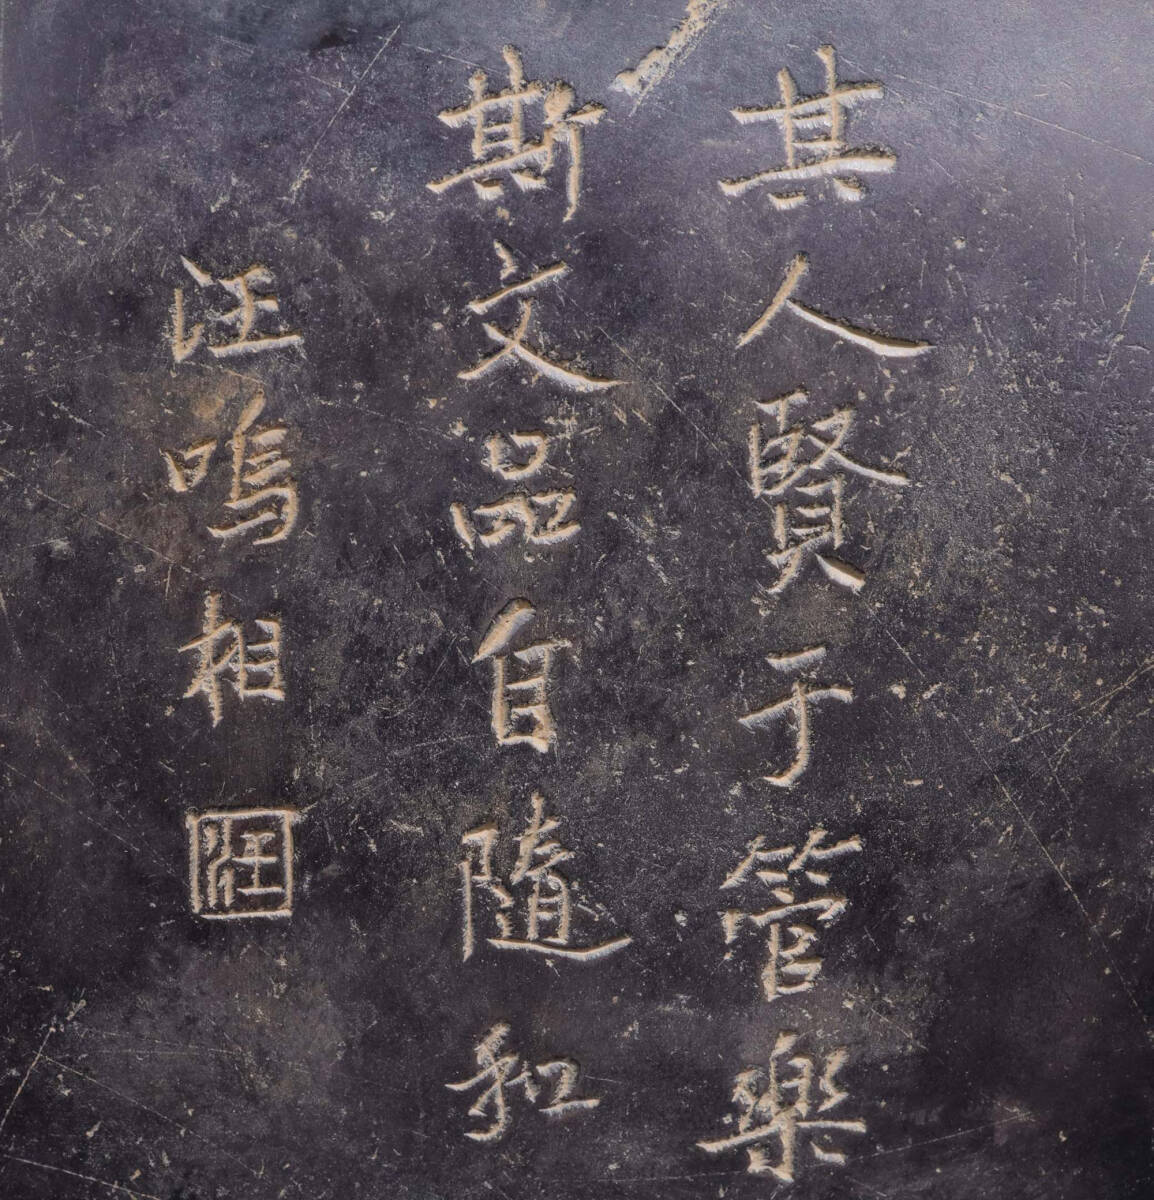 其人賢于管樂
斯文品自隨和
汪鳴相
汪